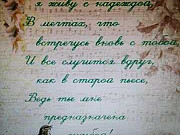 я живу с надеждой,
В мечтах, что
встречусь вновь с тобой,
И все случится вдруг,
как в старой пьесе,
Ведь ты мне
предназначена
судьбой!